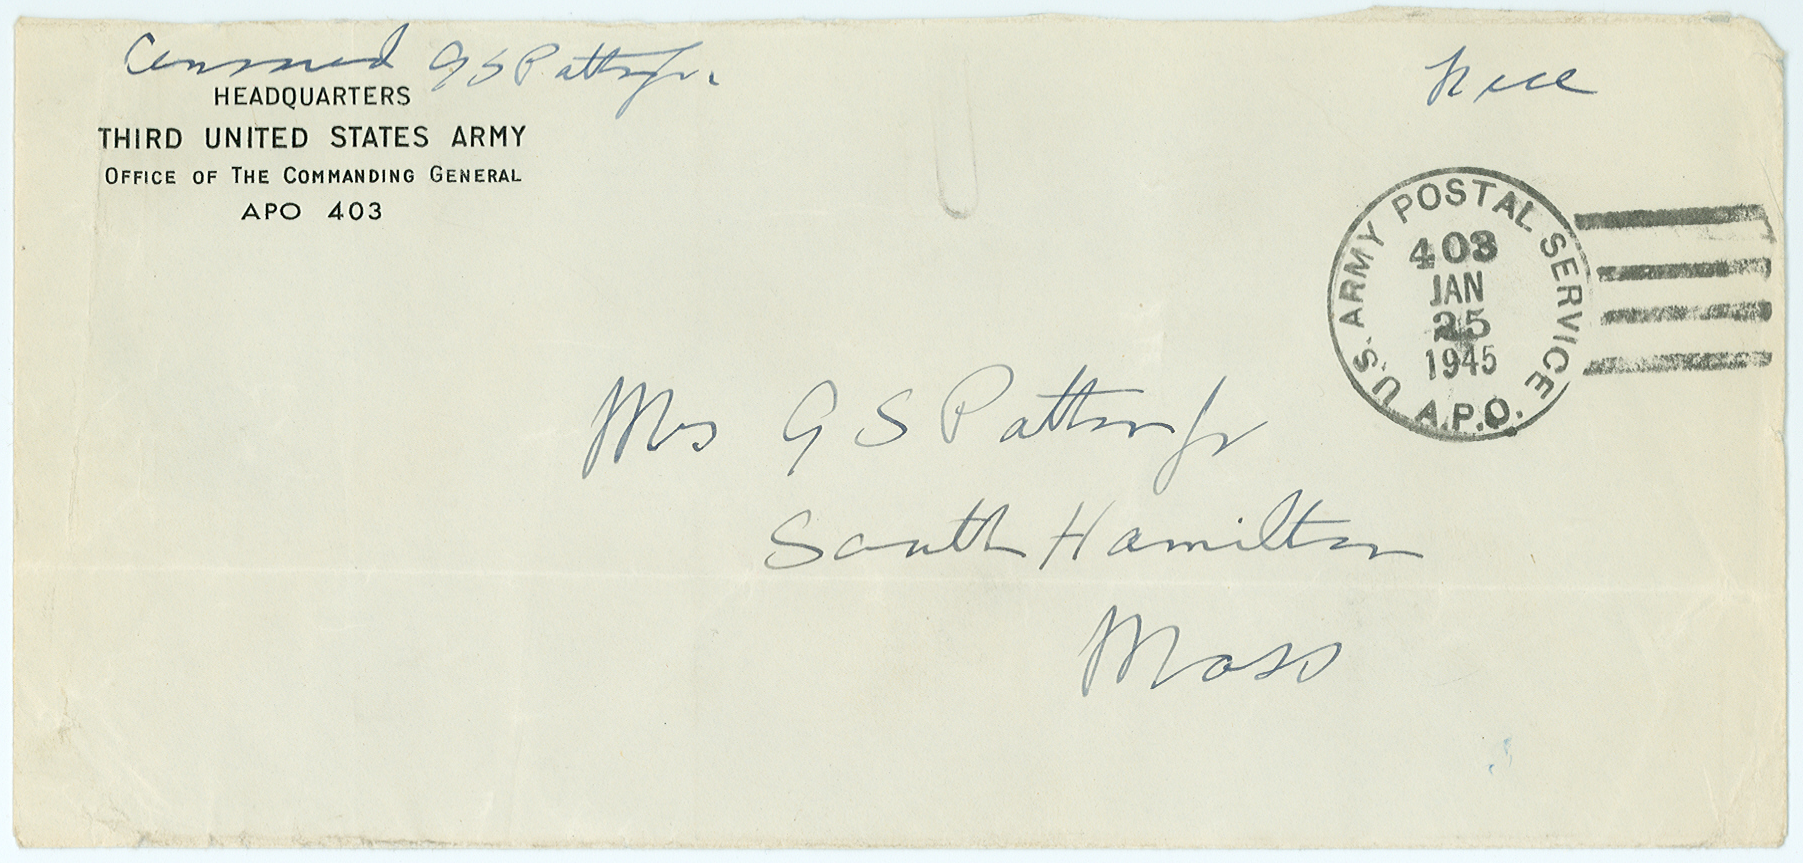 Censored G S Patton Jr.
Free
HEADQUARTERS
THIRD UNITED STATES ARMY
OFFICE OF THE COMMANDING GENERAL
APO 403
U.S. ARMY POSTAL SERVICE
403
JAN
25
1945
A.P.O.
Mrs G S Patton Jr
South Hamilton
Mass